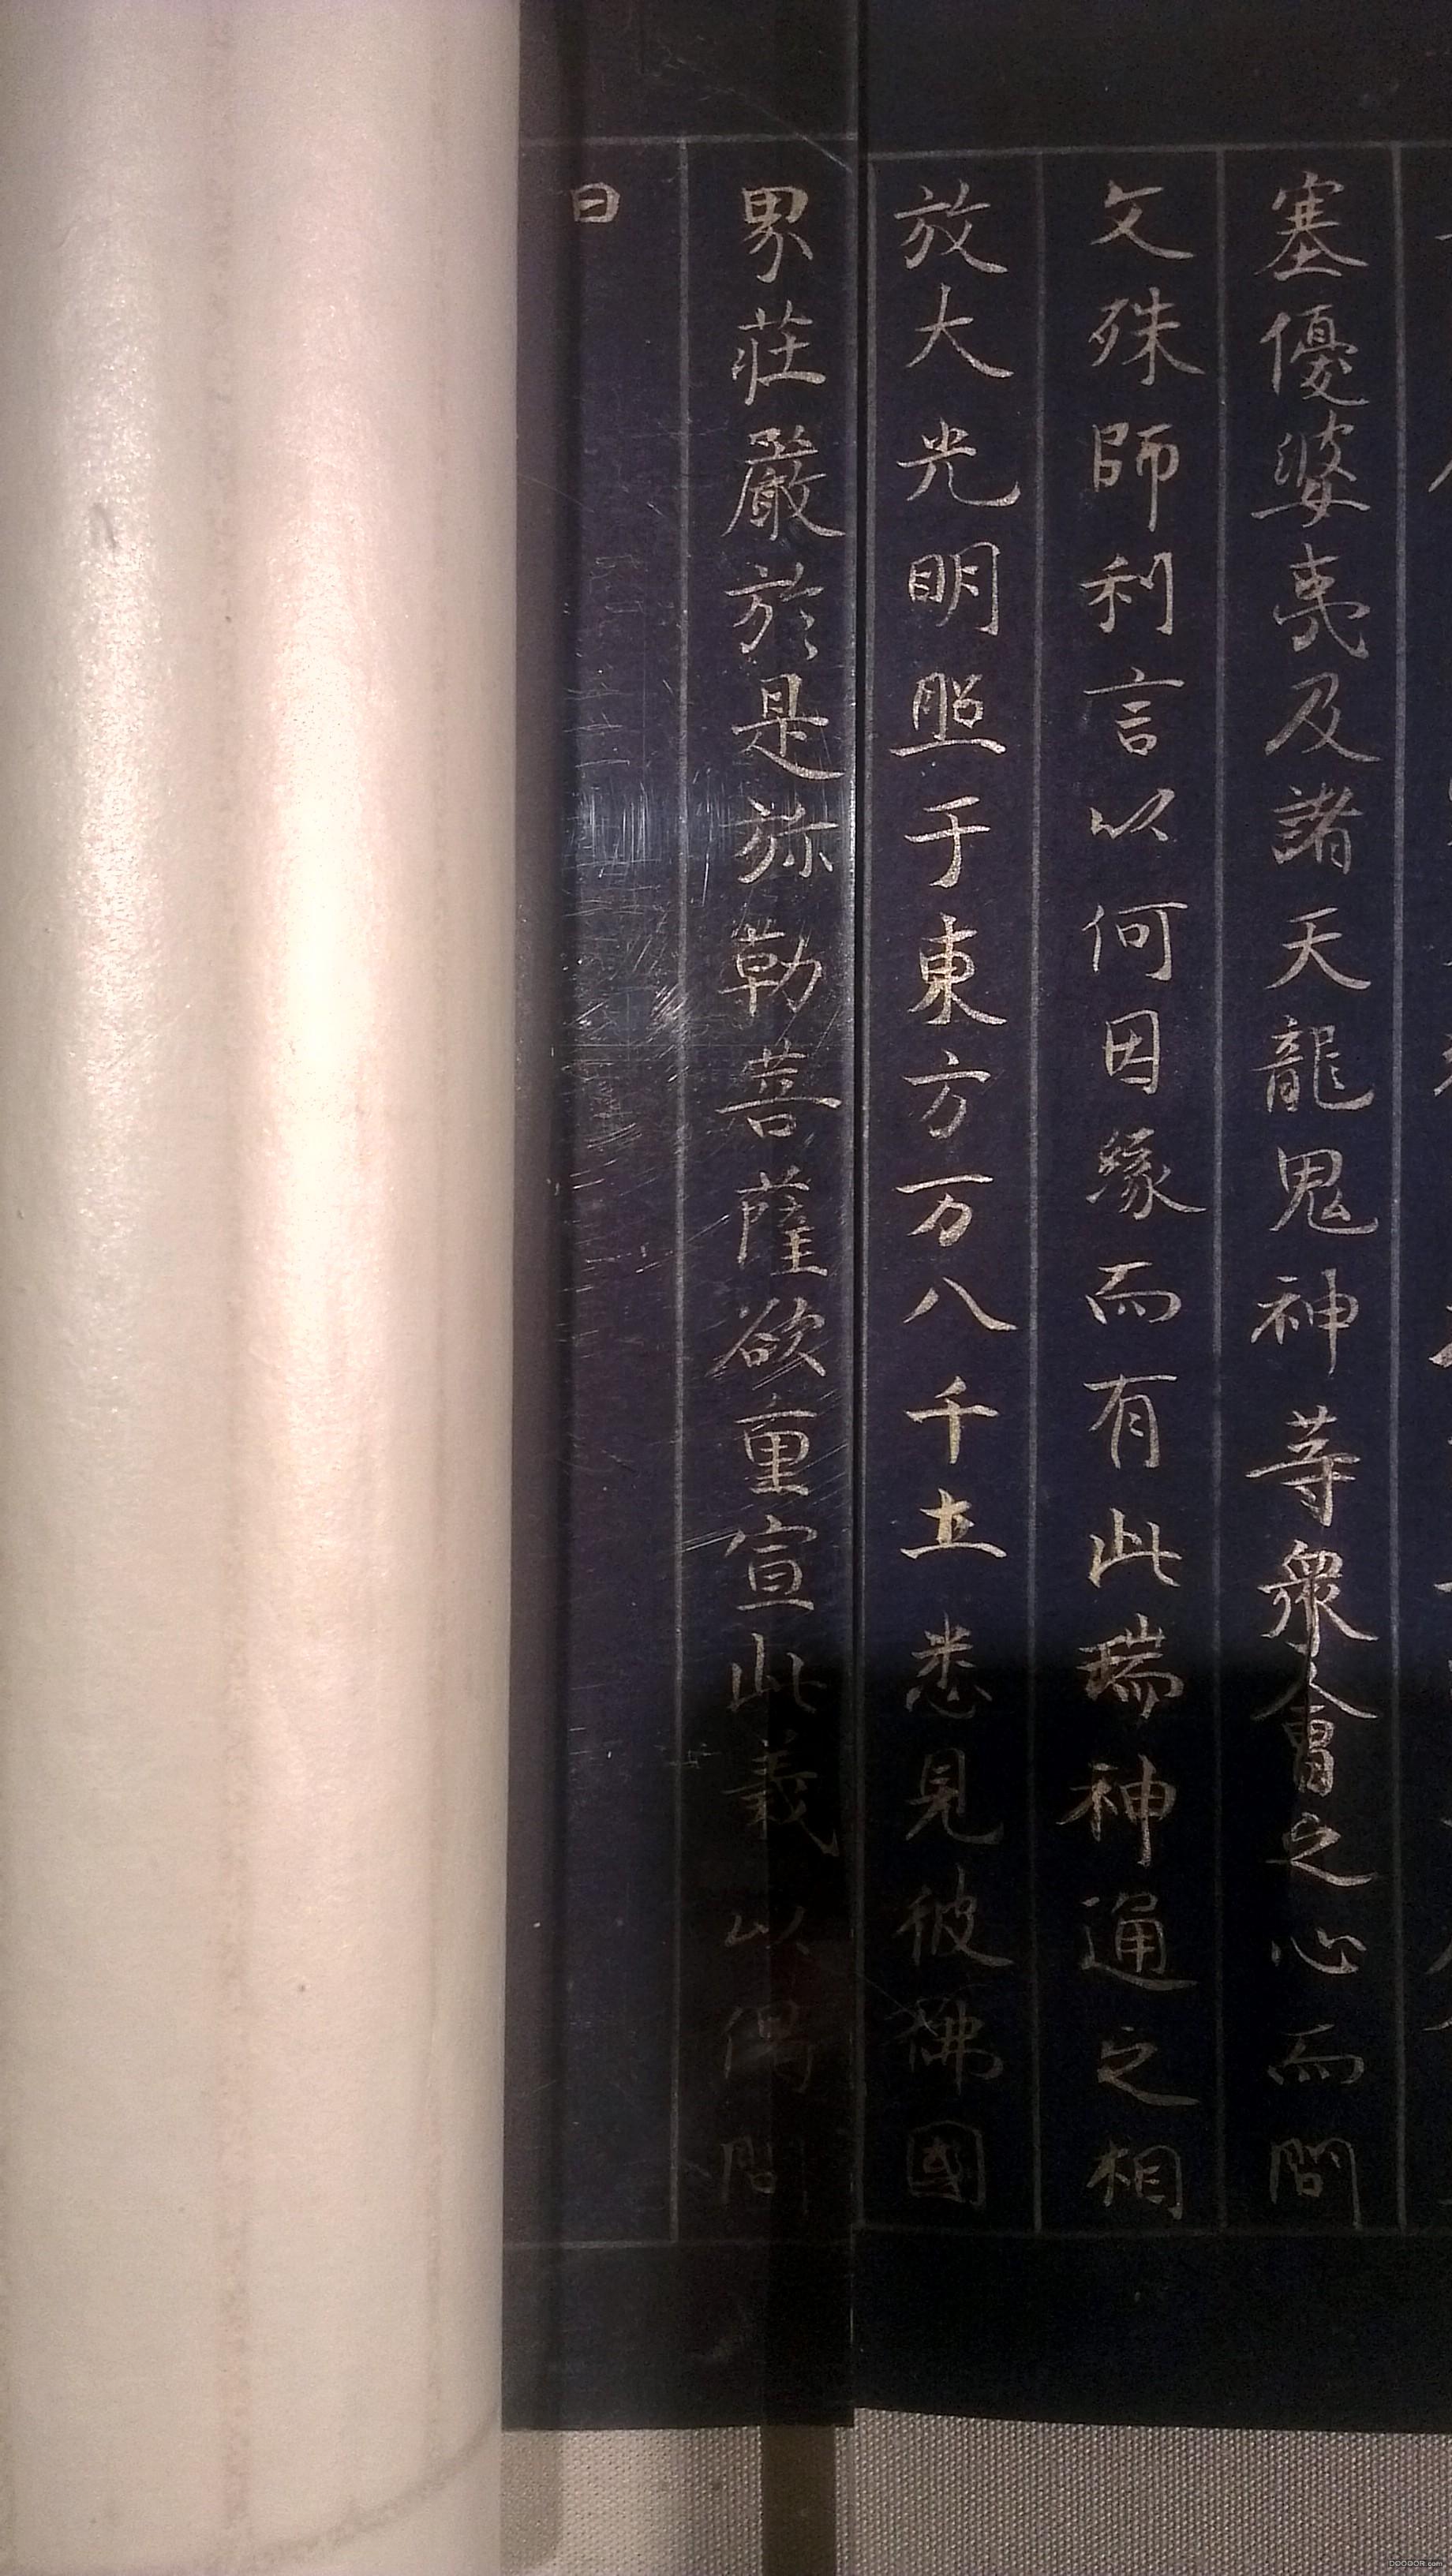 塞優婆夷及諸天龍鬼神等衆會之心而問
文殊師利言以何因緣而有此瑞神通之相
放大光明照于東方万八千土悉見彼佛國
界莊嚴於是弥勒菩薩欲重宣此義以偈問
曰